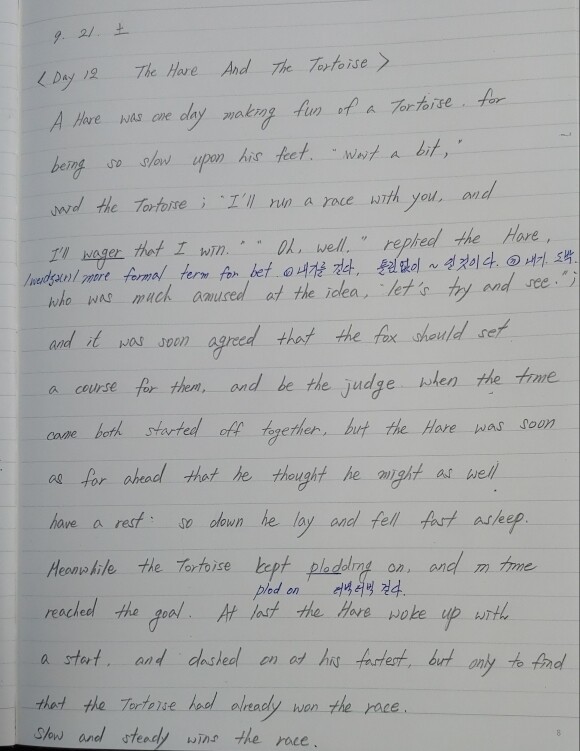 9. 21. 土
< Day 12 The Hare And The Tortoise >
A Hare was one day making fun of a Tortoise. for
being so slow upon his feet. "Wait a bit,"
said the Tortoise ; "I'll run a race with you, and
I'll wager that I win." "Oh, well." replied the Hare,
more formal term for bet ⓥ 내기를 걸다, 틀림없이 ~ 일 것이다. ⓝ 내기. 도박.
who was much amused at the idea, "let's try and see." ;
and it was soon agreed that the fox should set
a course for them, and be the judge. when the time
came both started off together, but the Hare was soon
as far ahead that he thought he might as well
have a rest : so down he lay and fell fast asleep.
Meanwhile the Tortoise kept plodding on, and in time
plod on 터벅터벅 걷다.
reached the goal. At last the Hare woke up with
a start, and dashed on at his fastest, but only to find
that the Tortoise had already won the race.
Slow and steady wins the race.
8